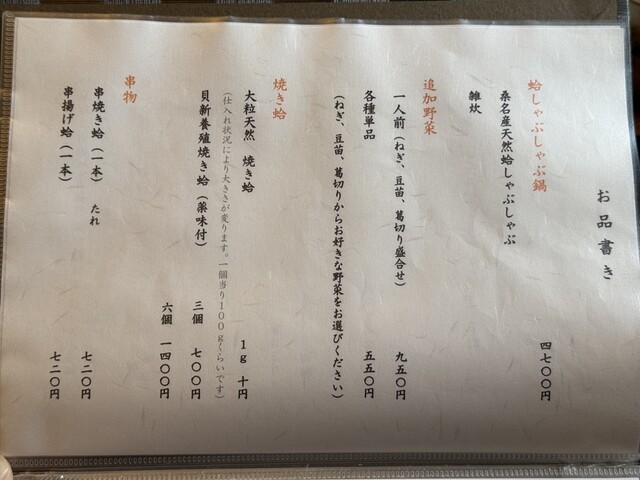 お品書き
蛤しゃぶしゃぶ鍋
桑名産天然蛤しゃぶしゃぶ 四七〇〇円
雑炊
追加野菜
一人前(ねぎ、豆苗、葛切り盛合せ) 九五〇円
各種単品 五五〇円
(ねぎ、豆苗、葛切りからお好きな野菜をお選びください)
焼き蛤
大粒天然 焼き蛤 1g 十円
(仕入れ状況により大きさが変ります。一個当り100gくらいです)
貝新養殖焼き蛤(薬味付) 三個 七〇〇円
六個 一四〇〇円
串物
串焼き蛤(一本) たれ 七二〇円
串揚げ蛤(一本) 七二〇円